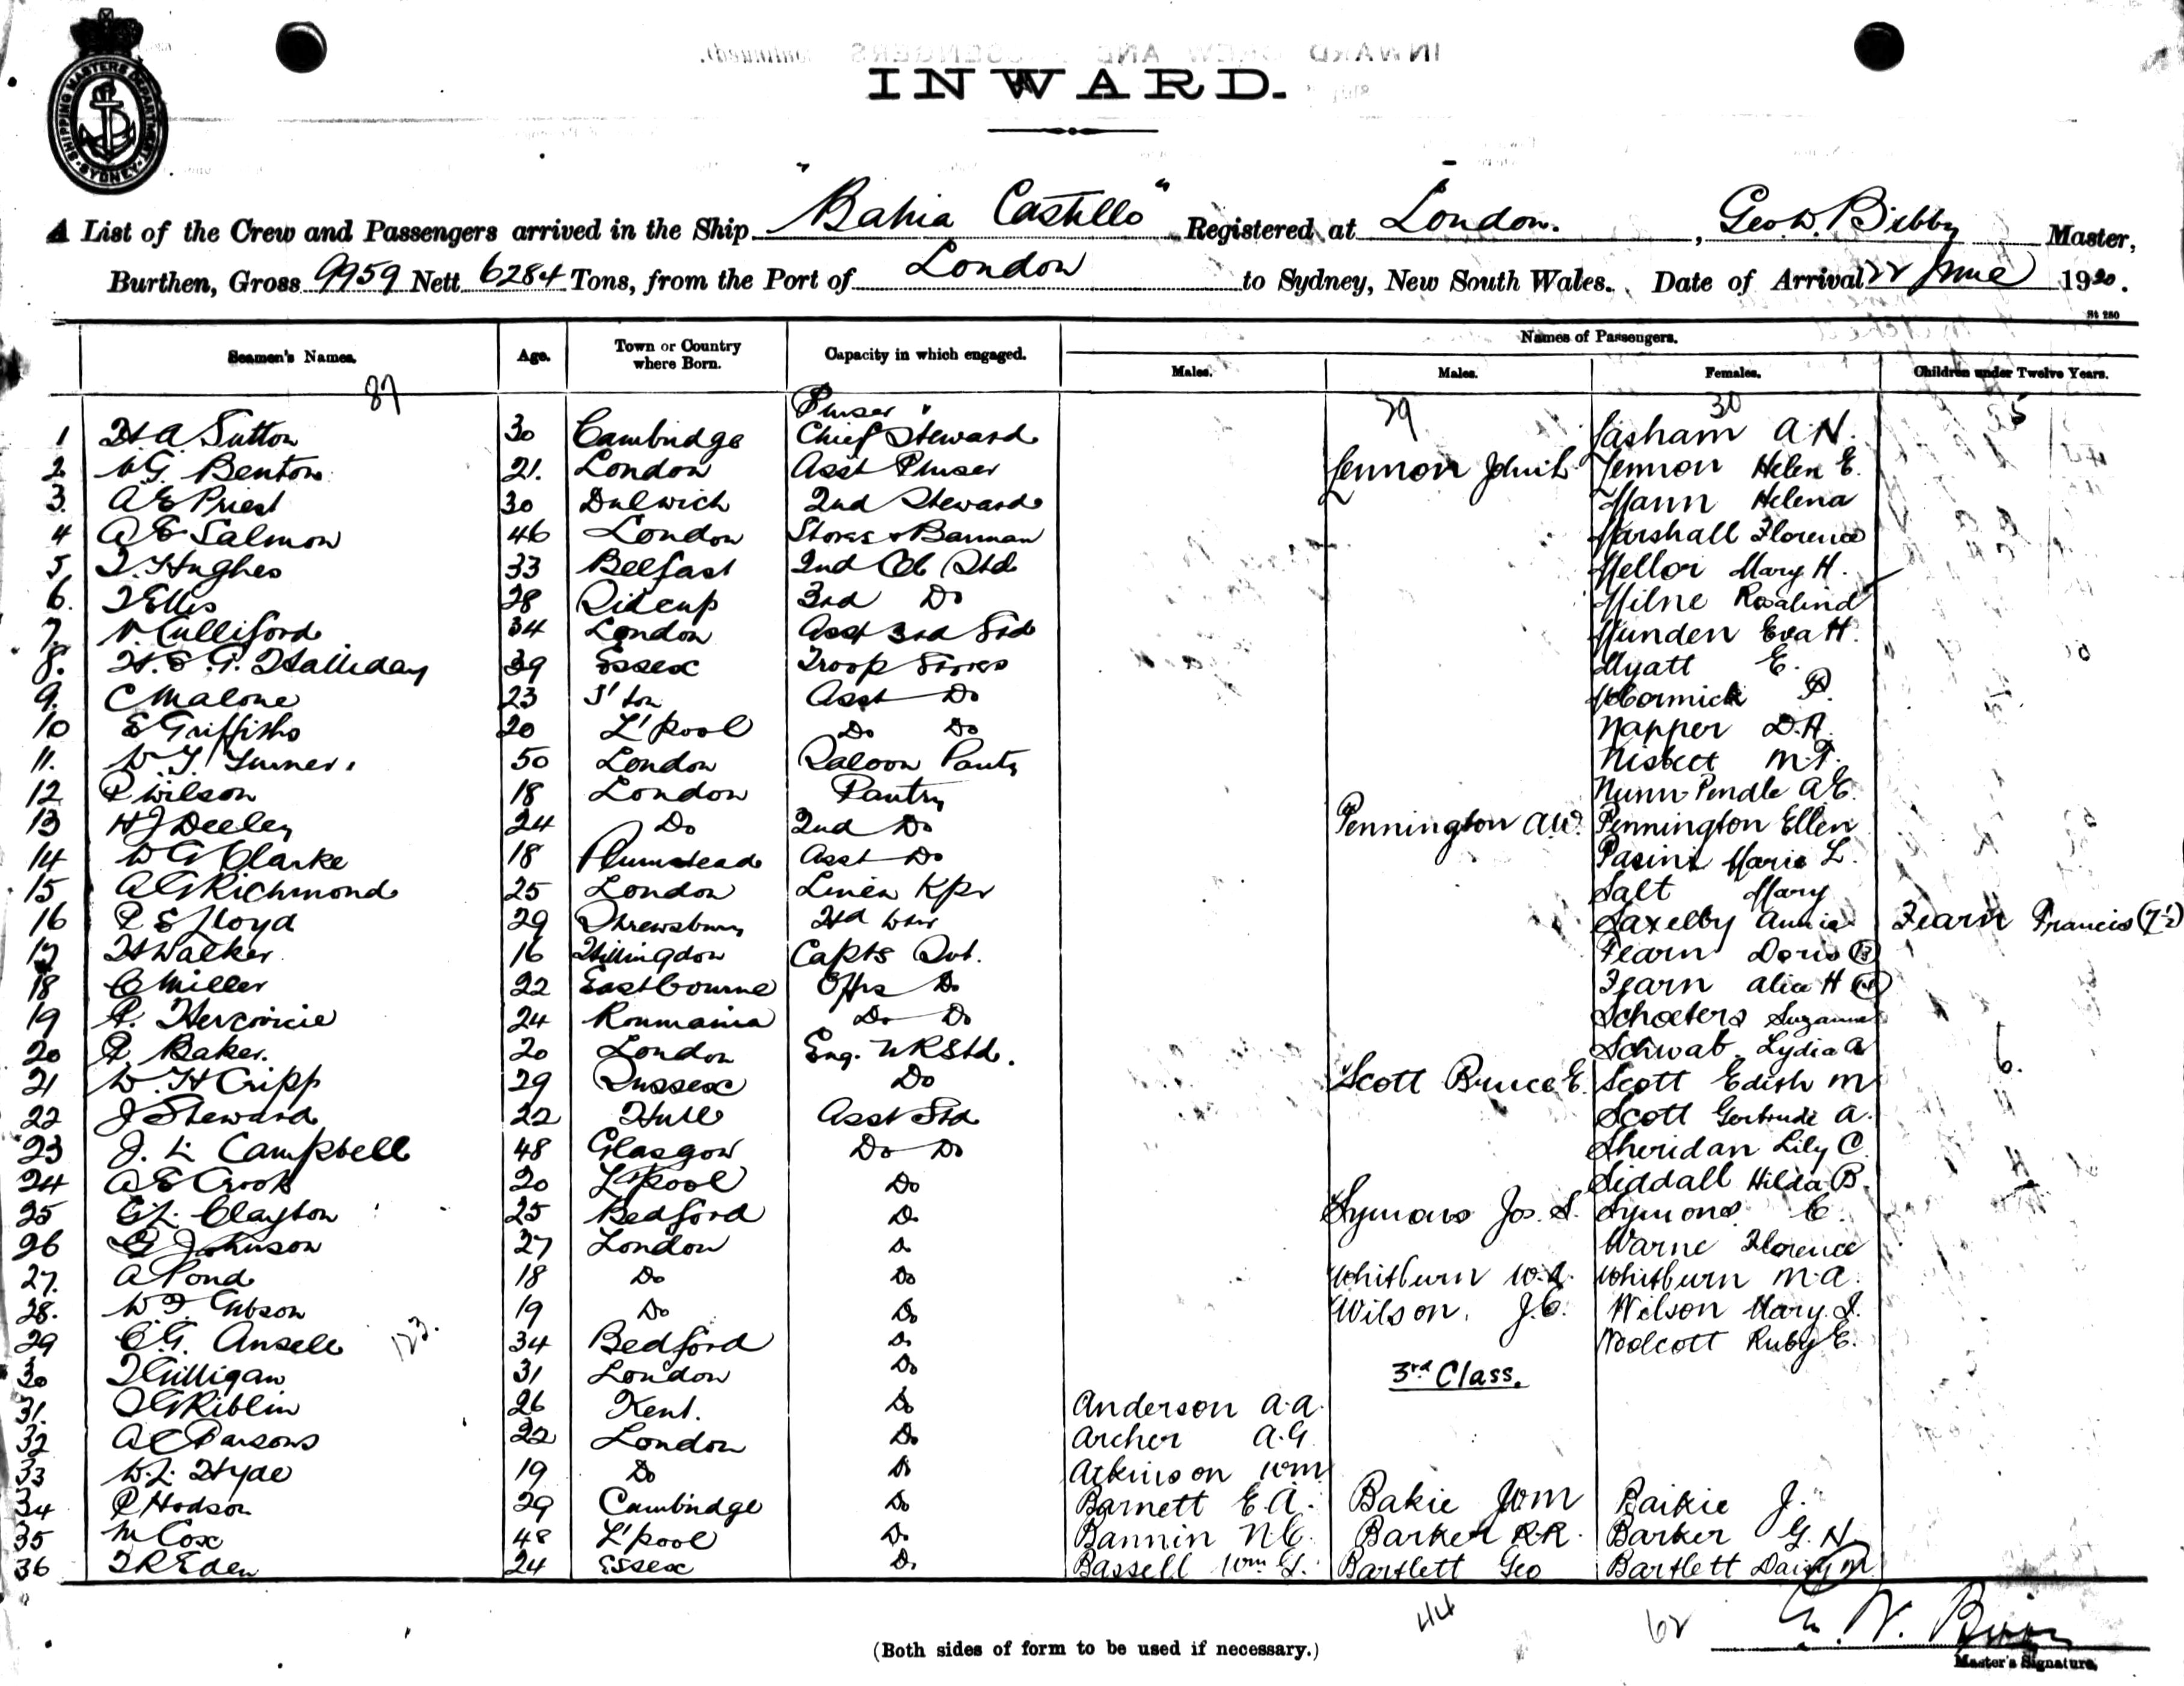 INWARD.
SHIPPING MASTERS DEPARTMENT SYDNEY
A List of the Crew and Passengers arrived in the Ship "Bahia Castillo" Registered at London. , Geo. W. Bibby Master,
Burthen, Gross 9959 Nett 6284 Tons, from the Port of London to Sydney, New South Wales. Date of Arrival 22 June 1920.
St 280
Names of Passengers.
Seamen's Names. Age. Town or Country where Born. Capacity in which engaged. Males. Males. Females. Children under Twelve Years.
87 Purser 29 30 5
1 H A Sutton 30 Cambridge Chief Steward Lasham A.N.
2 V.G. Benton 21. London Asst Purser Lennon John L Lennon Helen E.
3. A E Priest 30 Dulwich 2nd Steward Mann Helena
4 A E Salmon 46 London Stores & Barman Marshall Florence
5 T. Hughes 33 Belfast 2nd Std Mellor Mary H.
6. T Ellis 28 Sidcup 3rd Do Milne Rosalind
7. Culliford 34 London Asst 3rd Std Munden Eva H.
8. H. E. Halliday 39 Essex Troop Stores Myatt E.
9. C Malone 23 S'ton Asst Do McCormick
10 E Griffiths 20 L'pool Do Do Napper D.A.
11. W. Turner 50 London Saloon Pantry Nisbett M.T.
12 P Wilson 18 London Pantry Nunn-Pendle A E.
13 H J Deeley 24 Do 2nd Do Pennington A W. Pennington Ellen
14 W G Clarke 18 Plumstead Asst Do Pasini Marie L.
15 A G Richmond 25 London Linen Kpr Salt Mary
16 P E Lloyd 29 Shrewsbury Hd Wtr Saxelby Annie Fearn Francis (7½)
17 H Walker 16 Hillingdon Capts Svt. Fearn Doris
18 C Miller 22 Eastbourne Offrs Do Fearn Alice H
19 24 Roumania Do Do Schoeters Suzanne
20 Baker. 20 London Eng. M R Std. Schwab Lydia A
21 W. H Cripp 29 Sussex Do Scott Bruce E. Scott Edith M 6.
22 J Steward 22 Hull Asst Std Scott Gertrude A.
23 J. L. Campbell 48 Glasgow Do Do Sheridan Lily C.
24 A E Crook 20 L'pool Do Siddall Hilda B.
25 Clayton 25 Bedford Do Symons Jos. S. Symons E.
26 Johnson 27 London Do Warne Florence
27. A Pond 18 Do Do Whitburn W.A. Whitburn M.A.
28. W. F. Gibson 19 Do Do Wilson. J.C. Wilson Mary J.
29 C G. Ansell 123. 34 Bedford Do Woolcott Ruby E.
30 T Gilligan 31 London Do 3rd Class.
31. Riblin 26 Kent. Do Anderson A.A.
32 A C Parsons 22 London Do Archer A.G.
33 W. L. Hyde 19 Do Do Atkinson Wm
34 P Hodson 29 Cambridge Do Barnett E.A. Bakie Wm Baikie J.
35 M Cox 48 L'pool Do Bannin N.C. Barker R.R. Barker G.N.
36 T R Eden 24 Essex Do Bassell Wm G. Bartlett Geo Bartlett Daisy M
44 62
(Both sides of form to be used if necessary.)
Master's Signature.